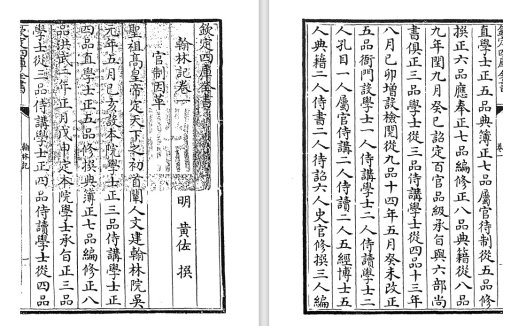 欽定四庫全書
翰林記卷一
明 黃佐 撰
官制因革
聖祖高皇帝定天下之初首闡人文建翰林院吳
元年五月己亥設本院學士正三品侍講學士正
四品直學士正五品修撰典簿正七品編修正八
品洪武二年正月戊申定本院學士承旨正三品
學士從三品侍講學士正四品侍讀學士從四品
欽定四庫全書 翰林記
欽定四庫全書 卷一
直學士正五品典簿正七品屬官待制從五品修
撰正六品應奉正七品編修正八品典籍從八品
九年閏九月癸巳詔定百官品級承旨與六部尚
書俱正三品學士從三品侍講學士從四品十三年
八月己卯增設檢閱從九品十四年五月癸未改正
五品衙門設學士一人侍講學士二人侍讀學士二
人孔目一人屬官侍講二人侍讀二人五經博士五
人典籍二人侍書二人待詔六人史官修撰三人編